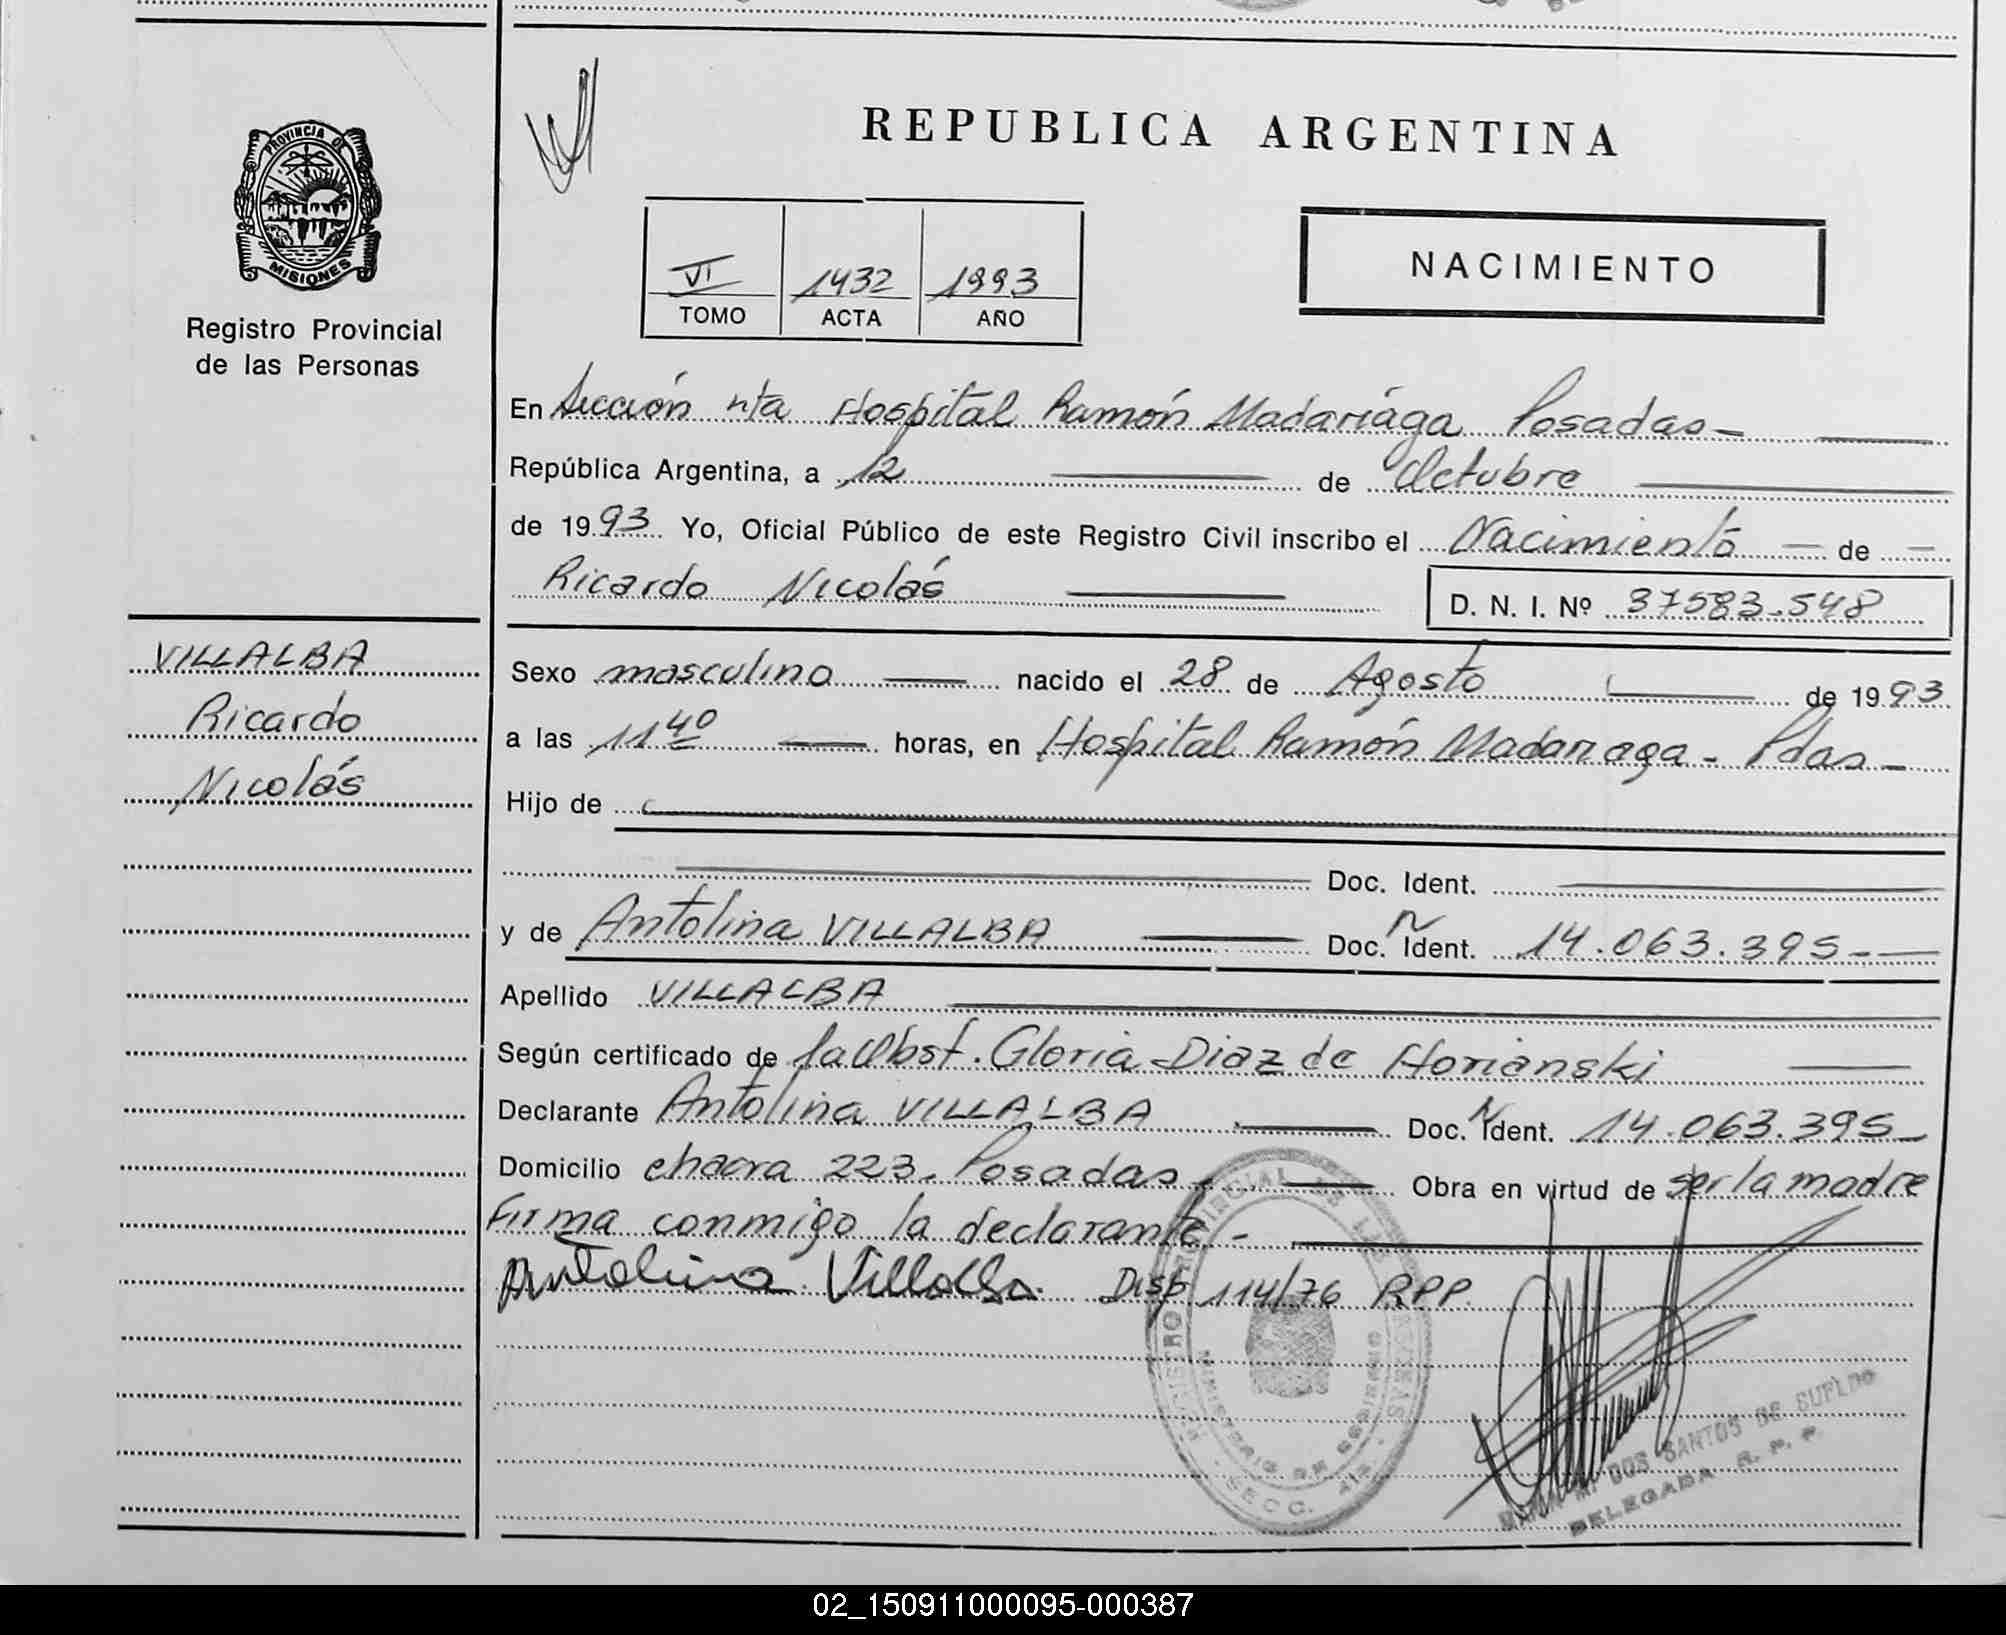 REPUBLICA ARGENTINA
PROVINCIA DE MISIONES
Registro Provincial
de las Personas
VI 1432 1993
TOMO ACTA AÑO
NACIMIENTO
En Sección 4ta Hospital Ramón Madariaga Posadas-
República Argentina, a 12 de Octubre
de 1993 Yo, Oficial Público de este Registro Civil inscribo el Nacimiento de
Ricardo Nicolás D. N. I. Nº 37583.548
VILLALBA
Ricardo
Nicolás
Sexo masculino nacido el 28 de Agosto de 1993
a las 11 40 horas, en Hospital Ramón Madariaga - Pdas -
Hijo de
Doc. Ident.
y de Antolina VILLALBA Doc. N Ident. 14.063.395-
Apellido VILLALBA
Según certificado de la Obst. Gloria Diaz de Horianski
Declarante Antolina VILLALBA Doc. N Ident. 14.063.395-
Domicilio chacra 223. Posadas Obra en virtud de ser la madre
Firma conmigo la declarante.-
Antolina Villalba Disp 114/76 RPP.
REGISTRO PROVINCIAL DE LAS PERSONAS
MINISTERIO DE GOBIERNO
SECC. 4ta
DOS SANTOS DE SUELDO
DELEGADA R. P. P.
02_150911000095-000387